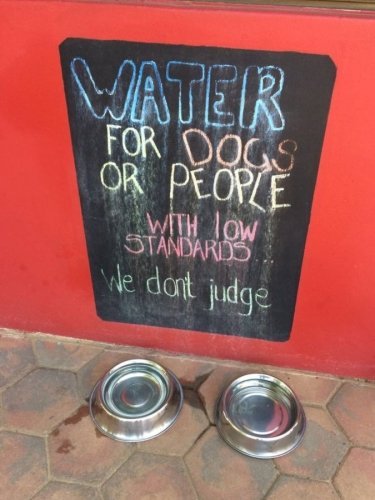 WATER
FOR DOGS
OR PEOPLE
WITH LOW
STANDARDS...
We don't judge